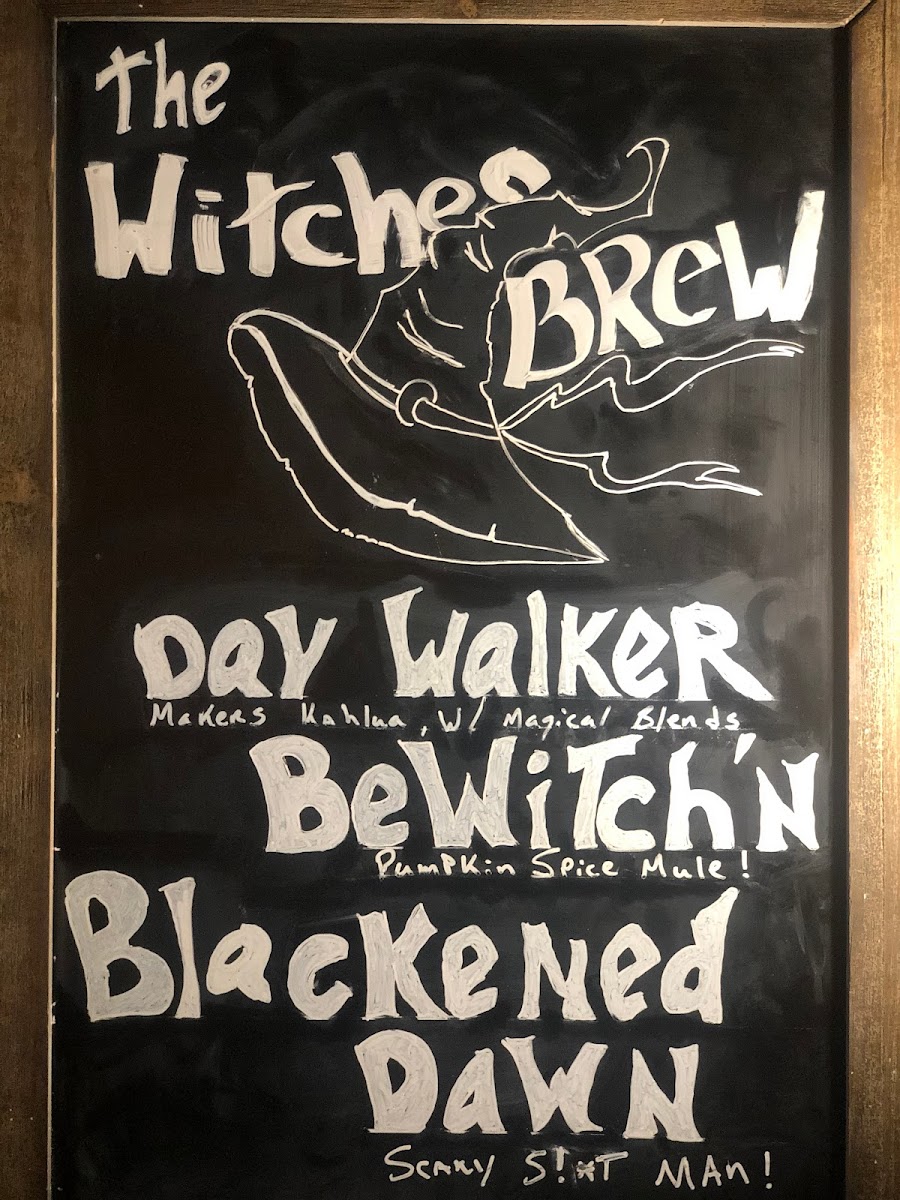 The
Witches
BReW
Day WalkeR
Makers Kahlua, W/ Magical Blends
BeWiTch'N
PumPKin Spice Mule!
BlacKeNed
DaWN
Scary S!*T MAn!